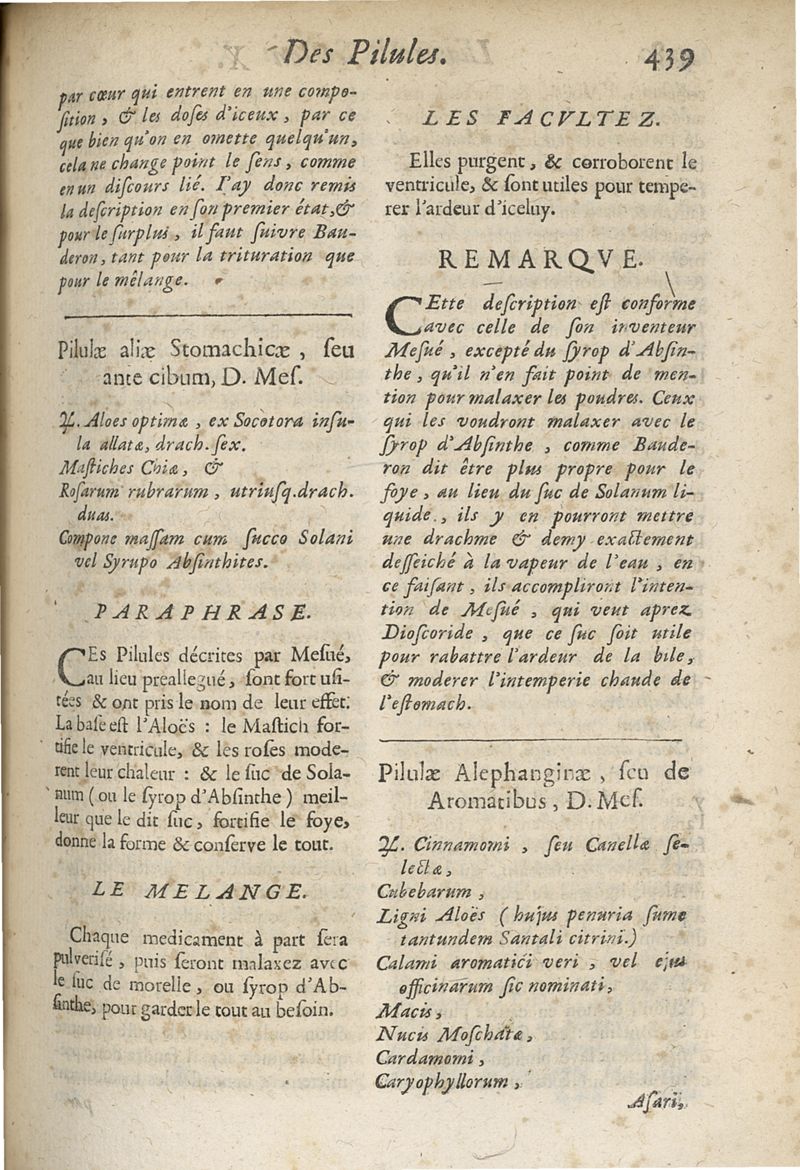 Des Pilules. 439
par cœur qui entrent en une compo-
ſition, & les doſes d'iceux, par ce
que bien qu'on en omette quelqu'un,
cela ne change point le ſens, comme
en un diſcours lié. I'ay donc remis
la deſcription en ſon premier état, &
pour le ſurplus, il faut ſuivre Bau-
deron, tant pour la trituration que
pour le mêlange.
Pilulæ aliæ Stomachicæ, ſeu
ante cibum, D. Meſ.
℞. Aloes optimæ, ex Socotora inſu-
la allatæ, drach. ſex.
Maſtiches Chiæ, &
Roſarum rubrarum, utriuſq. drach.
duas.
Compone maſſam cum ſucco Solani
vel Syrupo Abſinthites.
PARAPHRASE.
CEs Pilules décrites par Meſué,
au lieu preallegué, ſont fort uſi-
tées & ont pris le nom de leur effet.
La baſe eſt l'Aloës : le Maſtich for-
tifie le ventricule, & les roſes mode-
rent leur chaleur : & le ſuc de Sola-
num (ou le ſyrop d'Abſinthe) meil-
leur que le dit ſuc, fortifie le foye,
donne la forme & conſerve le tout.
LE MELANGE.
Chaque medicament à part ſera
pulveriſé, puis ſeront malaxez avec
le ſuc de morelle, ou ſyrop d'Ab-
ſinthe, pour garder le tout au beſoin.
LES FACVLTEZ.
Elles purgent, & corroborent le
ventricule, & ſont utiles pour tempe-
rer l'ardeur d'iceluy.
REMARQVE.
CEtte deſcription eſt conforme
avec celle de ſon inventeur
Meſué, excepté du ſyrop d'Abſin-
the, qu'il n'en fait point de men-
tion pour malaxer les poudres. Ceux
qui les voudront malaxer avec le
ſyrop d'Abſinthe, comme Baude-
ron dit être plus propre pour le
foye, au lieu du ſuc de Solanum li-
quide., ils y en pourront mettre
une drachme & demy exactement
deſſeiché à la vapeur de l'eau, en
ce faiſant, ils accompliront l'inten-
tion de Meſué, qui veut aprez
Dioſcoride, que ce ſuc ſoit utile
pour rabattre l'ardeur de la bile,
& moderer l'intemperie chaude de
l'eſtomach.
Pilulæ Alephanginæ, ſeu de
Aromatibus, D. Meſ.
℞. Cinnamomi, ſeu Canellæ ſe-
lectæ,
Cubebarum,
Ligni Aloës (hujus penuria ſume
tantundem Santali citrini.)
Calami aromatici veri, vel ejus
officinarum ſic nominati,
Macis,
Nucis Moſchatæ,
Cardamomi,
Caryophyllorum,
Aſari,